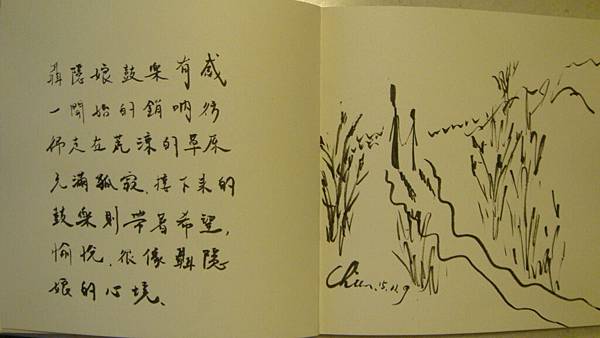 聶隱娘鼓樂有感
一開始的銷吶彷
彿走在荒涼的草原
充滿孤寂,接下來的
鼓樂則帶著希望,
愉悅,很像聶隱
娘的心境.
Chun.15.11.9